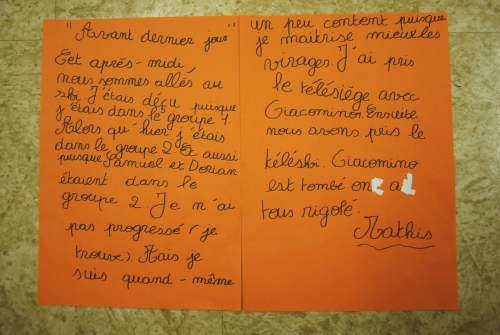 " Avant dernier jour "
Cet après-midi,
nous sommes allés au
ski. J'étais déçu puisque
j'étais dans le groupe 1.
Alors qu'hier j'étais
dans le groupe 2. Et aussi
puisque Samuel et Dorian
étaient dans le
groupe 2. Je n'ai
pas progressé (je
trouve). Mais je
suis quand-même
un peu content puisque
je maitrise mieux les
virages. J'ai pris
le télésiège avec
Giacomino. Ensuite
nous avons pris le
téléski. Giacomino
est tombé on a
tous rigolé.
Mathis